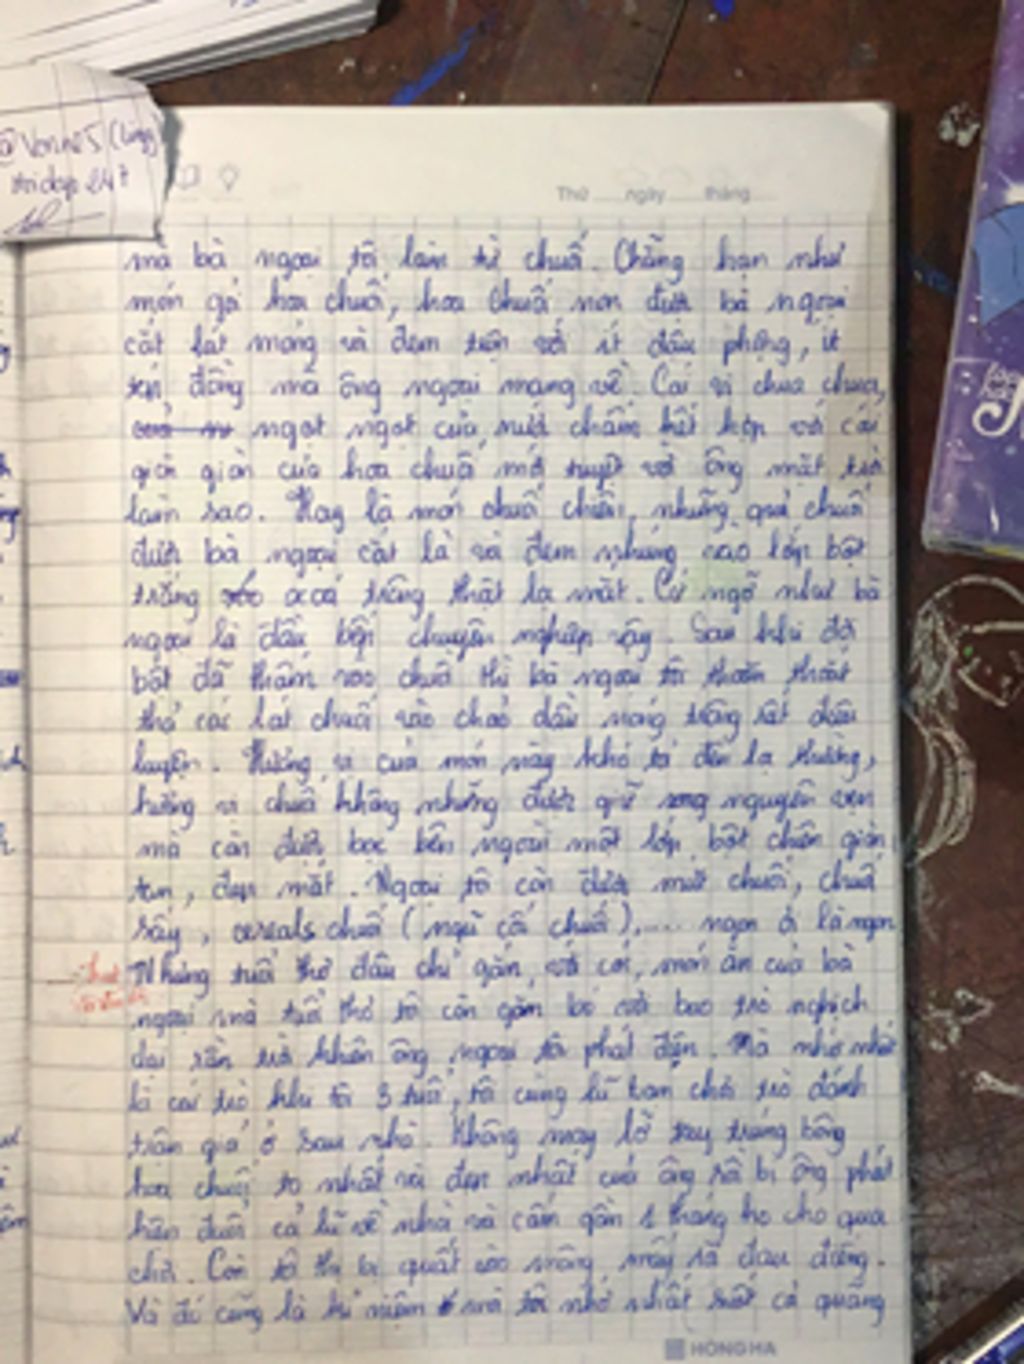 Thứ ngày tháng
mà bà ngoại tôi làm từ chuối. Chẳng hạn như
món gỏi hoa chuối, hoa chuối non được bà ngoại
cắt lát mỏng và đem trộn với ít đậu phộng, ít
đồng mà ông ngoại mang về. Cái vị chua chua,
ngọt ngọt của nước chấm kết hợp với cái
giòn giòn của hoa chuối mới tuyệt vời ông mặt trời
làm sao. Hay là món chuối chiên, những quả chuối
được bà ngoại cắt lá và đem nhúng vào lớp bột
trắng xoá trông thật lạ mắt. Cứ ngỡ như bà
ngoại là đầu bếp chuyên nghiệp vậy. Sau khi đợi
bột đã thấm vào chuối thì bà ngoại tôi thoăn thoắt
thả các lát chuối vào chảo dầu nóng trông rất điêu
luyện. Hương vị của món này khó tả đến lạ thường,
hương vị chuối không những được giữ nguyên vẹn
mà còn được bọc bên ngoài một lớp bột chiên giòn
tan, đẹp mắt. Ngoài tô còn được mứt chuối, chuối
sấy, cereals chuối (ngũ cốc chuối),.... ngon ơi là ngon
Nhưng tuổi thơ đâu chỉ gắn với cái món ăn của bà
ngoại mà tuổi thơ tôi còn gắn bó với bao trò nghịch
dại rần trời khiến ông ngoại tôi phát điên. Mà nhớ nhất
là cái trò khi tôi 3 tuổi, tôi cùng lũ bạn chơi trò đánh
trận giả ở sau nhà. Không may lỡ tay trúng bông
hoa chuối to nhất và đẹp nhất của ông rồi bị ông phát
hiện đuổi cả lũ về nhà và cấm gần 1 tháng ko cho qua
chơi. Còn tôi thì bị quất vào mông mấy rõ đau điếng.
Và đó cũng là kỉ niệm mà tôi nhớ nhất suốt cả quãng
HONG HA